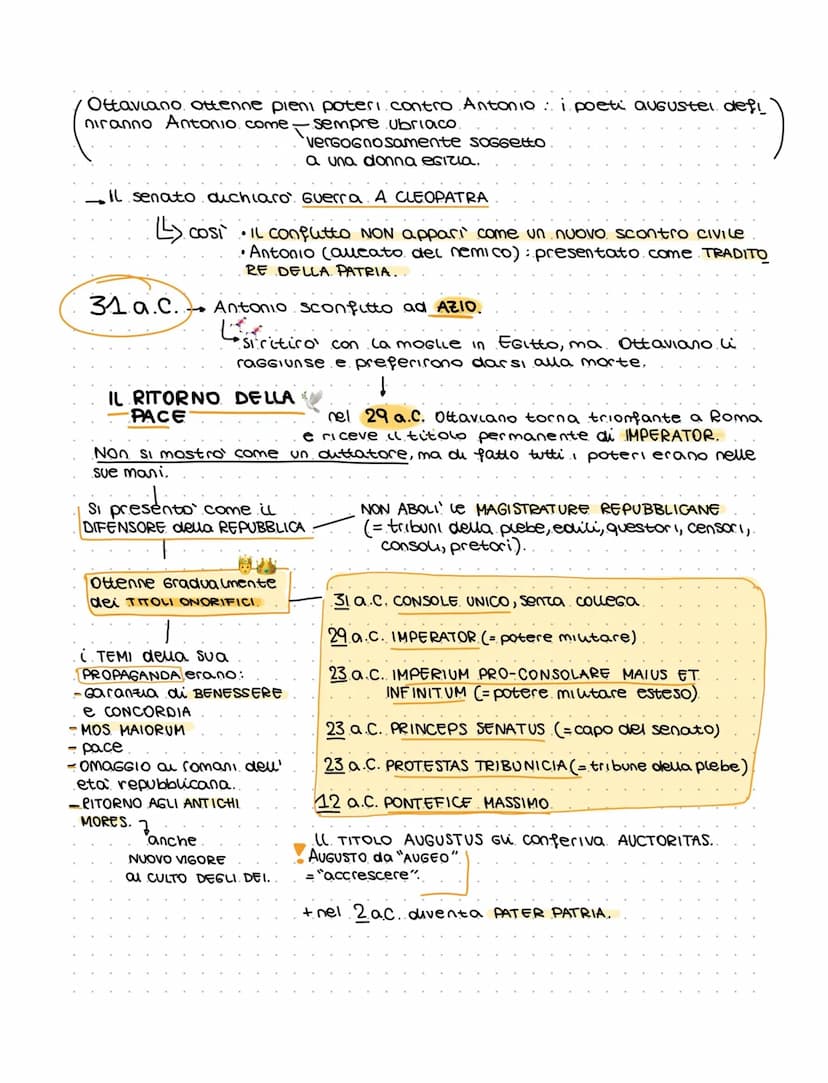 (Ottaviano ottenne pieni poteri contro Antonio : i poeti augustei defi
niranno Antonio come — sempre ubriaco
vergognosamente soggetto
a una donna egizia.)
→ Il senato dichiarò guerra A CLEOPATRA
↳ così • IL conflitto NON apparì come un nuovo scontro civile
• Antonio (alleato del nemico) : presentato come TRADITO
RE DELLA PATRIA.
31 a.C. → Antonio sconfitto ad AZIO.
↳ si ritirò con la moglie in Egitto, ma Ottaviano li
raggiunse e preferirono darsi alla morte.
↓
IL RITORNO DELLA
PACE
nel 29 a.C. Ottaviano torna trionfante a Roma
e riceve il titolo permanente di IMPERATOR.
Non si mostrò come un dittatore, ma di fatto tutti i poteri erano nelle
sue mani.
Si presentò come il
DIFENSORE della REPUBBLICA
NON ABOLI' le MAGISTRATURE REPUBBLICANE
(= tribuni della plebe, edili, questori, censori,
consoli, pretori).
Ottenne Gradualmente
dei TITOLI ONORIFICI
31 a.C. CONSOLE UNICO, senza collega
29 a.C. IMPERATOR (= potere militare)
23 a.C. IMPERIUM PRO-CONSOLARE MAIUS ET
INFINITUM (= potere militare esteso)
23 a.C. PRINCEPS SENATUS (= capo del senato)
23 a.C. PROTESTAS TRIBUNICIA (= tribune della plebe)
12 a.C. PONTEFICE MASSIMO
i TEMI della sua
PROPAGANDA erano:
- Garanzia di BENESSERE
e CONCORDIA
- MOS MAIORUM
- pace
- OMAGGIO ai romani dell'
età repubblicana.
- RITORNO AGLI ANTICHI
MORES.
anche
NUOVO VIGORE
al CULTO DEGLI DEI.
Il TITOLO AUGUSTUS Gli conferiva AUCTORITAS.
! AUGUSTO da "AUGEO"
= "accrescere".
+ nel 2 a.C. diventa PATER PATRIA.